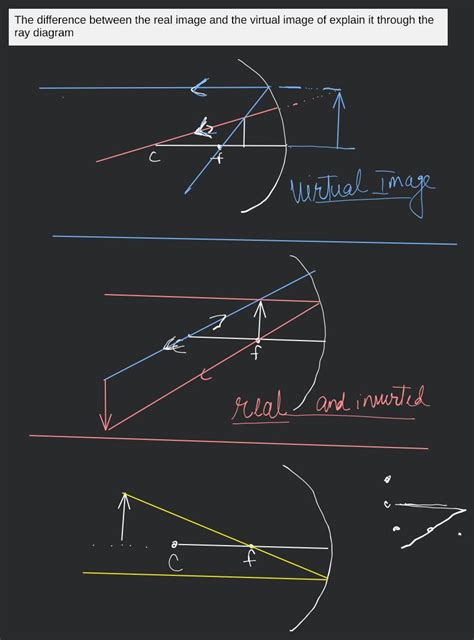 The difference between the real image and the virtual image of explain it through the
ray diagram
C
f
Virtual Image
f
real and inverted
C
f